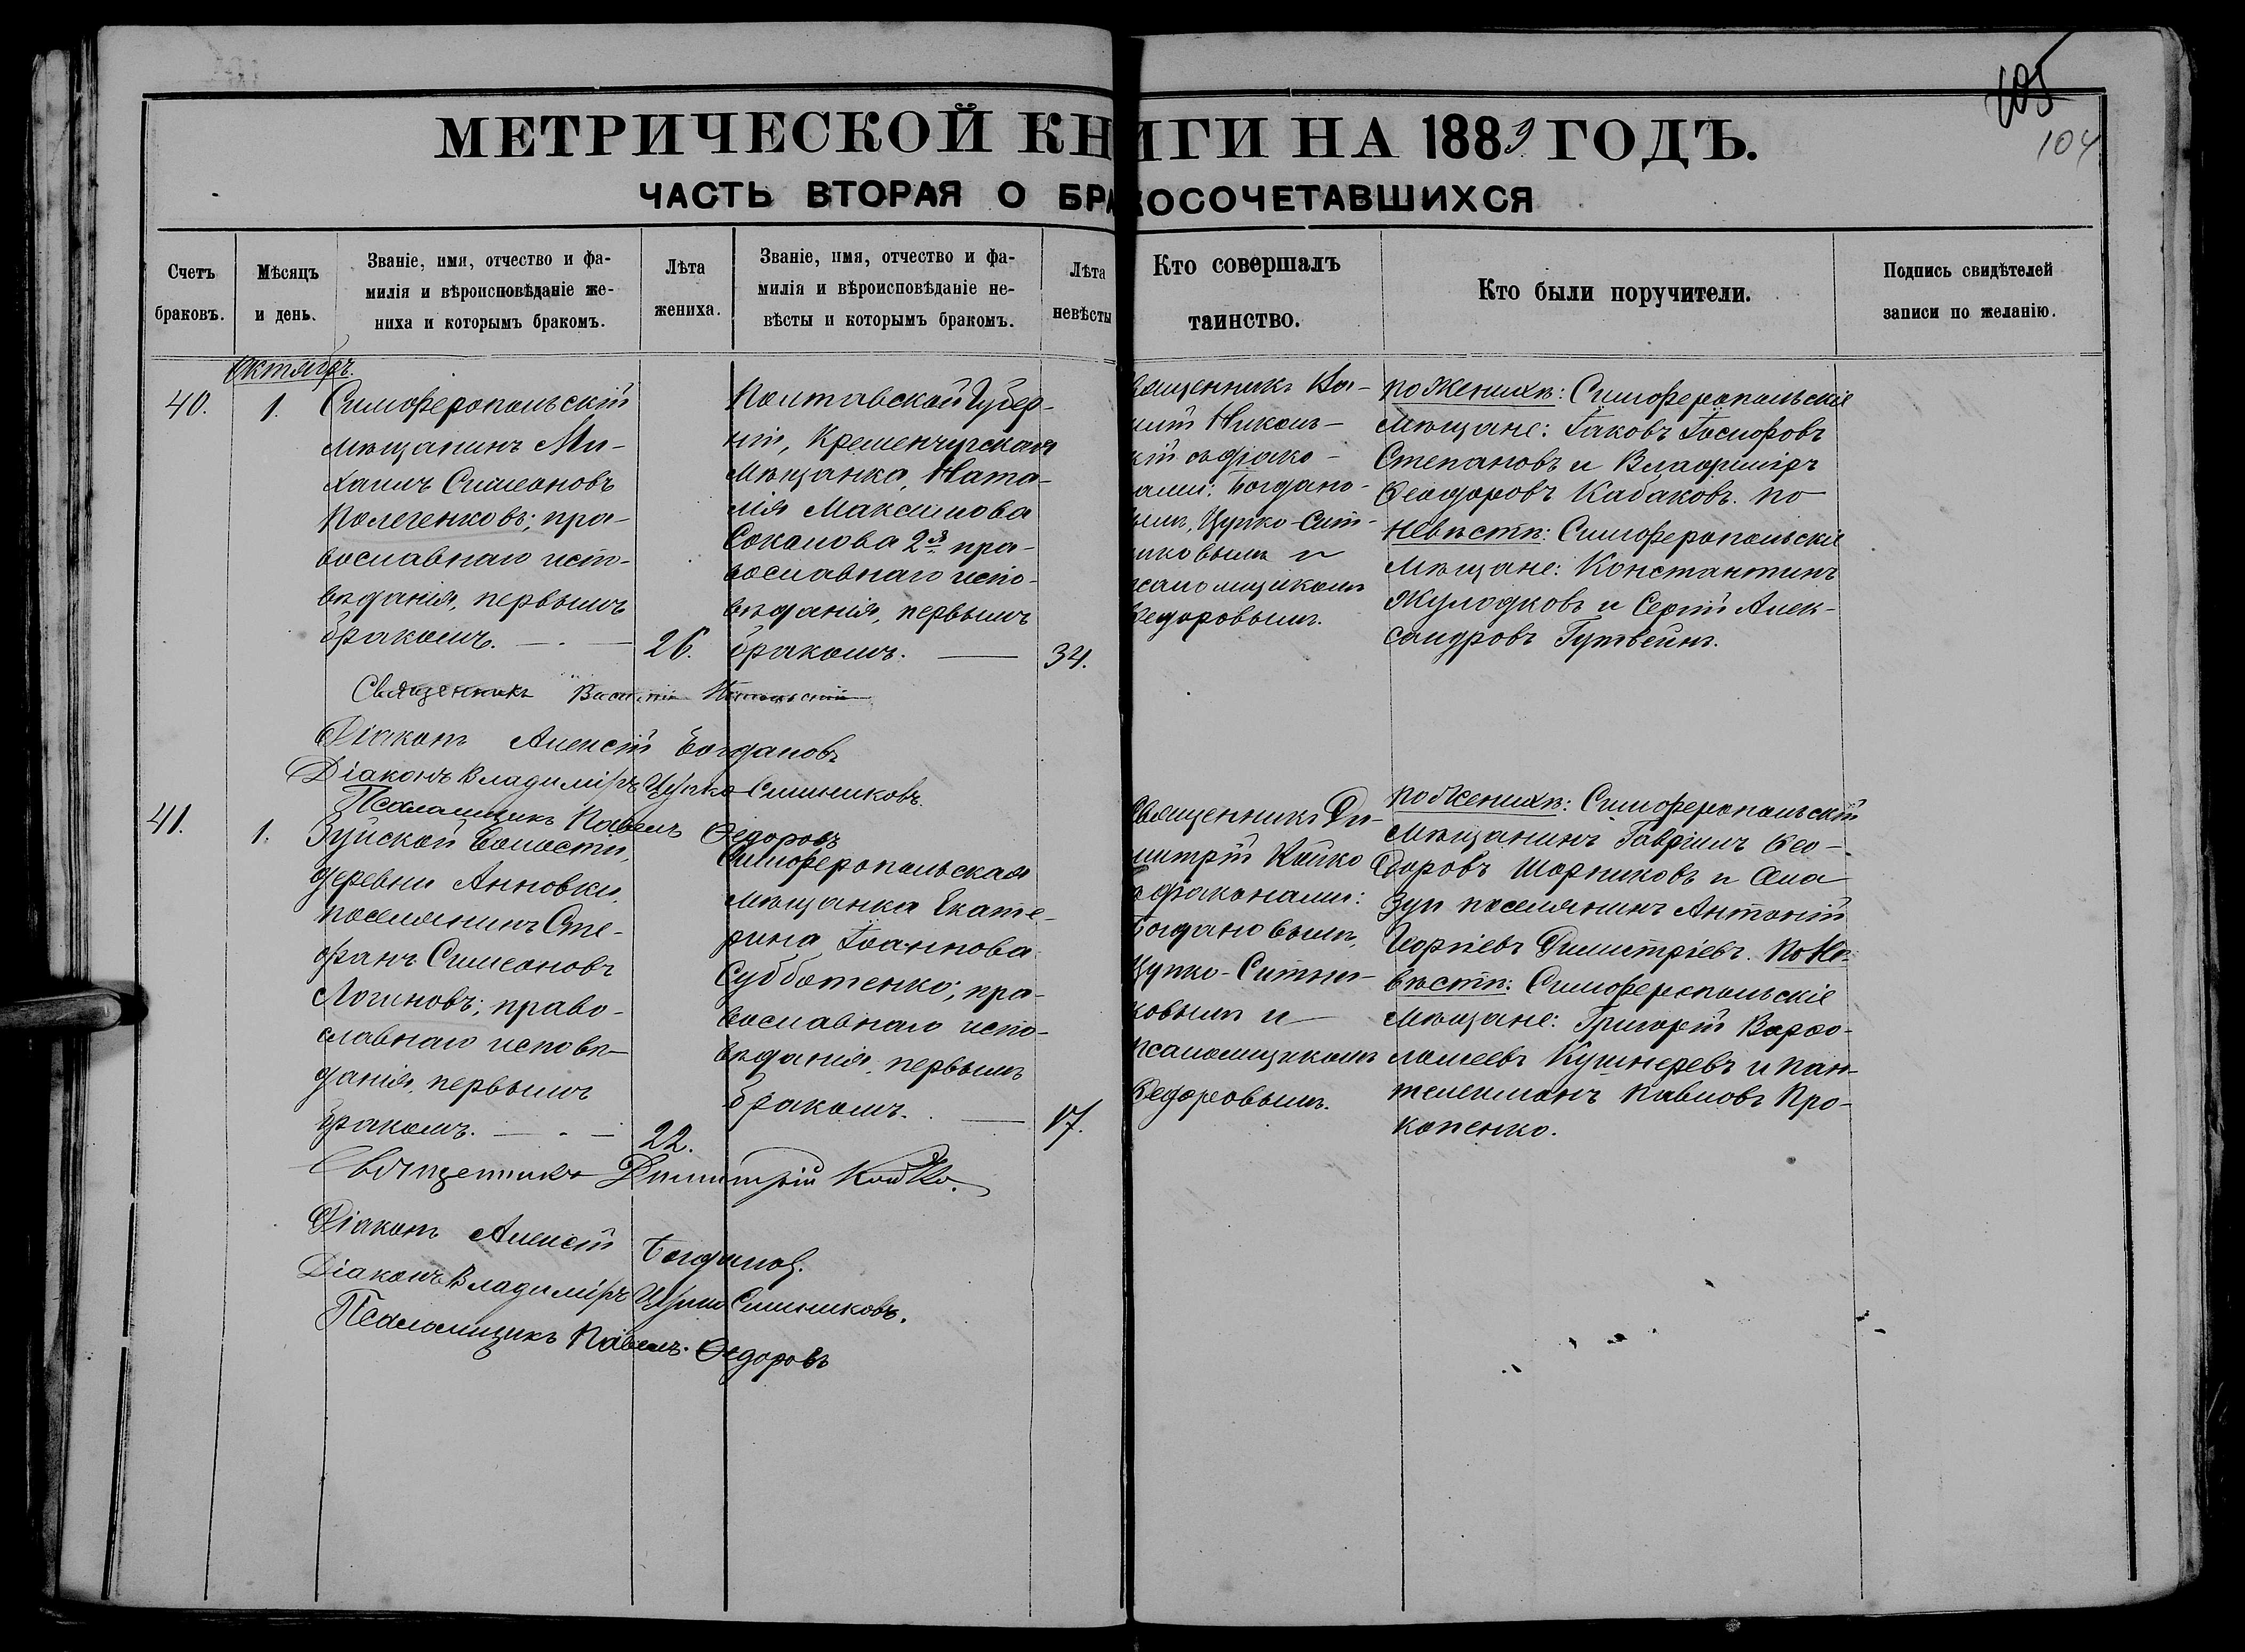 105
104
МЕТРИЧЕСКОЙ КНИГИ НА 1889 ГОДЪ.
ЧАСТЬ ВТОРАЯ О БРАКОСОЧЕТАВШИХСЯ
Счетъ
браковъ.
Мѣсяцъ
и день.
Званіе, имя, отчество и фа-
милія и вѣроисповѣданіе же-
ниха и которымъ бракомъ.
Лѣта
жениха.
Званіе, имя, отчество и фа-
милія и вѣроисповѣданіе не-
вѣсты и которымъ бракомъ.
Лѣта
невѣсты
Кто совершалъ
таинство.
Кто были поручители.
Подпись свидѣтелей
записи по желанію.
Октябрь.
40.
1.
Симферопольскій
мѣщанинъ Ми-
хаилъ Симеоновъ
Полегенковъ; пра-
вославнаго испо-
вѣданія, первымъ
бракомъ.
26.
Полтавской Губер-
ніи, Кременчугская
мѣщанка, Ната-
лія Максимова
Соколова 2я пра-
вославнаго испо-
вѣданія, первымъ
бракомъ.
34.
вященникъ Ва-
илій Николь-
кій съ діако-
нами: Богдано-
вымъ, Цупко-Сит-
никовымъ и
псаломщикомъ
Федоровымъ.
по женихѣ: Симферопольскіе
мѣщане: Іаковъ Іосифовъ
Степановъ и Владиміръ
Феодоровъ Кабаковъ. по
невѣстѣ: Симферопольскіе
мѣщане: Константинъ
Жулодковъ и Сергій Алек-
сандровъ Гутвейнъ.
Священникъ Василій Никольскій
Діаконъ Алексій Богдановъ
Діаконъ Владиміръ Цупко Ситниковъ.
Псаломщикъ Павелъ Федоровъ
41.
1.
Зуйской Волости,
деревни Анновки,
поселянинъ Сте-
фанъ Симеоновъ
Логиновъ; право-
славнаго исповѣ-
данія, первымъ
бракомъ.
22.
Симферопольская
мѣщанка Екате-
рина Іоаннова
Субботенко; пра-
вославнаго испо-
вѣданія, первымъ
бракомъ.
17.
Священникъ Ди-
митрій Койко
съ діаконами:
Богдановымъ,
Цупко-Ситни-
ковымъ и
псаломщикомъ
Федоровымъ.
по женихѣ: Симферопольскій
мѣщанинъ Гавріилъ Фео-
доровъ Шорниковъ и села
Зуи поселянинъ Антоній
Георгіевъ Димитріевъ. По Не-
вѣстѣ: Симферопольскіе
мѣщане: Григорій Варфо-
ломеевъ Кушнеревъ и Пан-
телеимонъ Павловъ Про-
копенко.
Священникъ Димитрій Койко.
Діаконъ Алексій Богдановъ.
Діаконъ Владиміръ Цупко Ситниковъ.
Псаломщикъ Павелъ Федоровъ